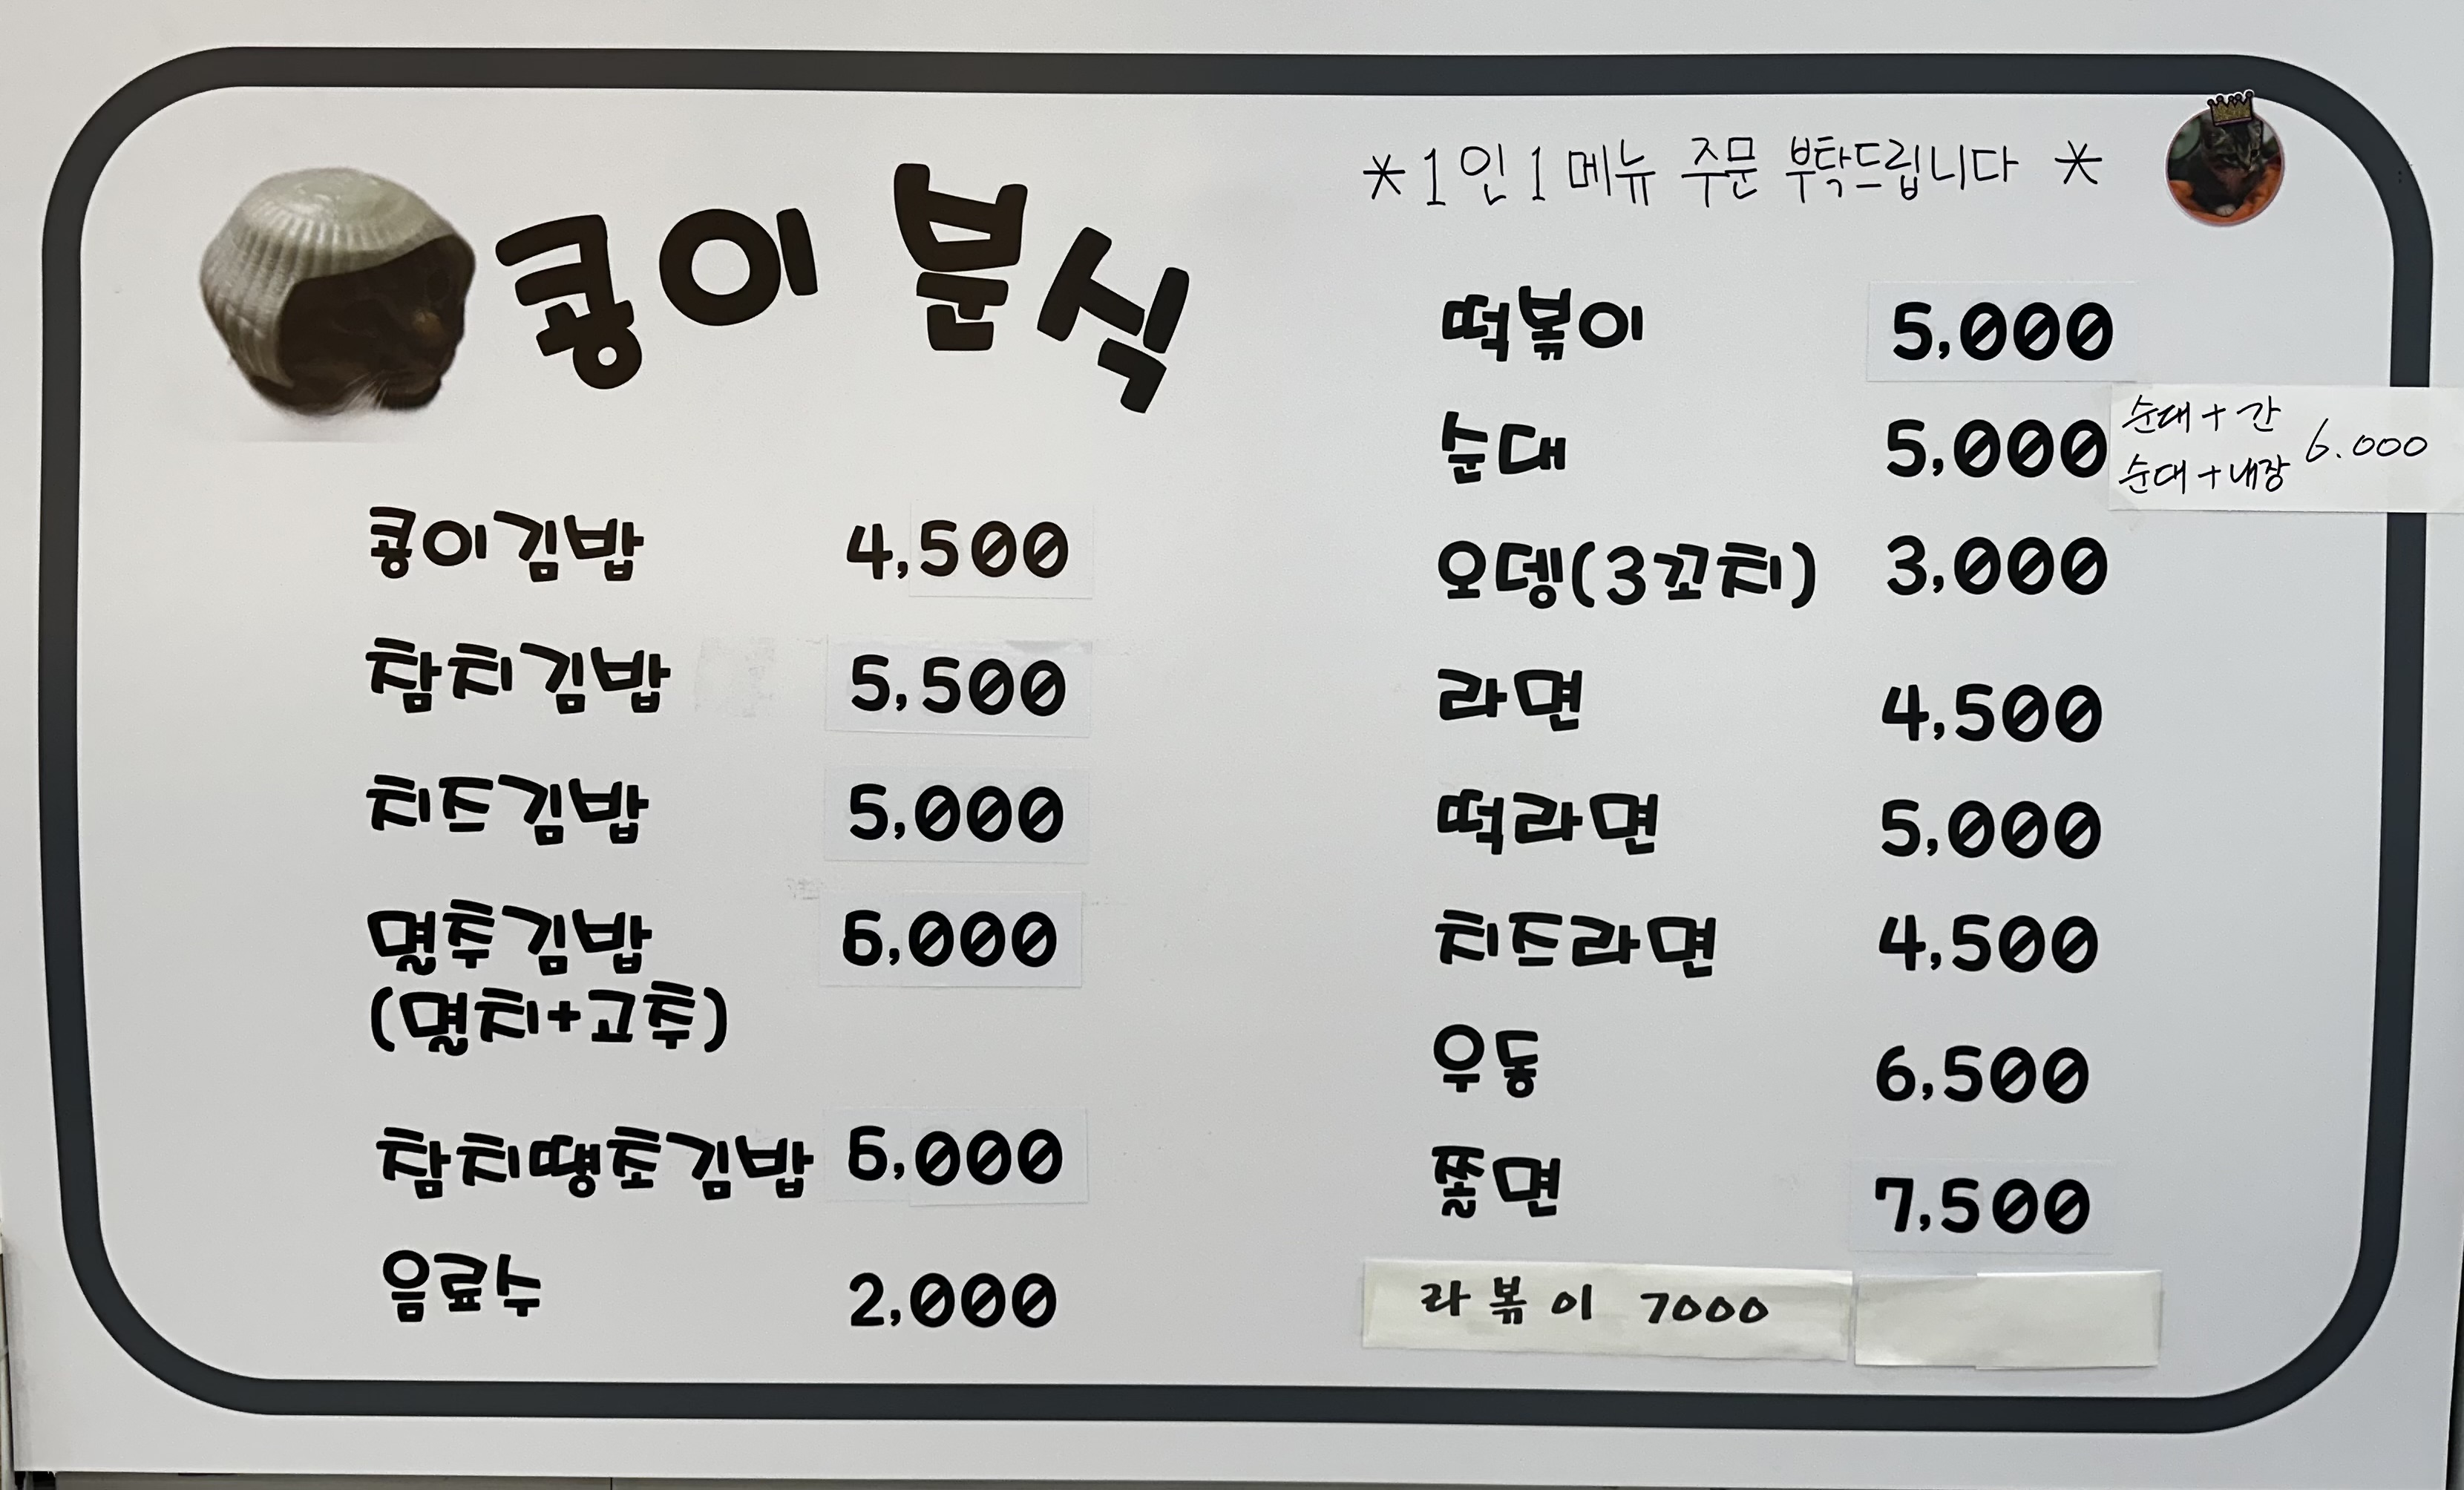 콩이 분식
콩이김밥 4,500
참치김밥 5,500
치즈김밥 5,000
멸추김밥 6,000
(멸치+고추)
참치땡초김밥 6,000
음료수 2,000
*1인 1메뉴 주문 부탁드립니다*
떡볶이 5,000
순대 5,000
순대+간
순대+내장 6.000
오뎅(3꼬치) 3,000
라면 4,500
떡라면 5,000
치즈라면 4,500
우동 6,500
쫄면 7,500
라볶이 7000